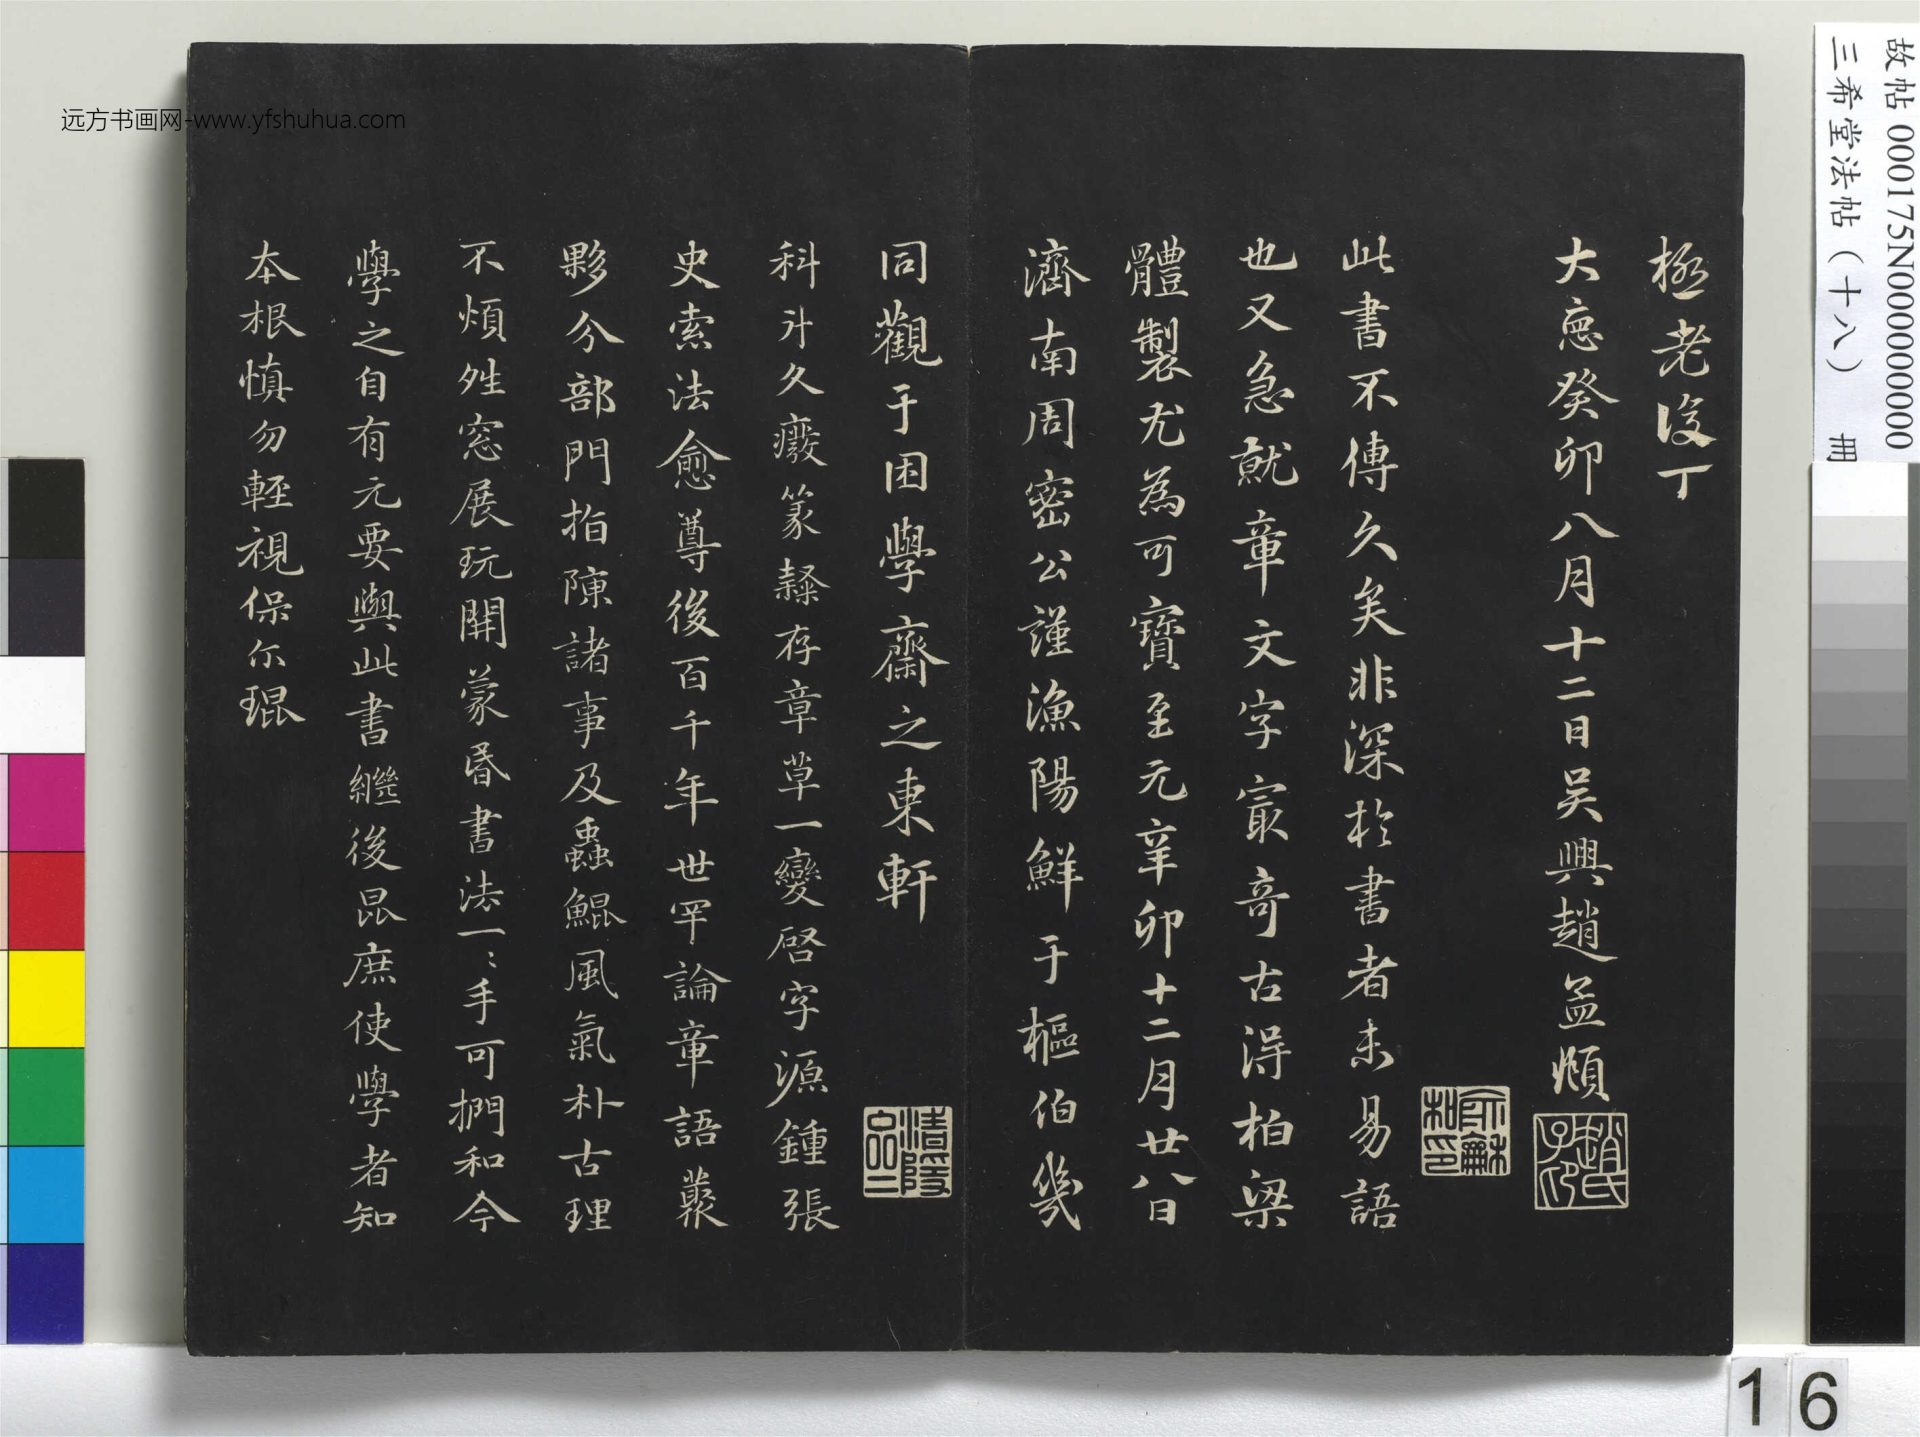 極老沒丁
大悳癸卯八月十二日吴興趙孟頫
趙氏子卬
俞龢和印
此書不傳久矣非深於書者未易語
也又急就章文字冣奇古淂柏梁
體製尤為可寶至元辛卯十二月廿八日
濟南周密公謹漁陽鮮于樞伯幾
同觀于困學齋之東軒
科斗久癈篆隸存章草一變啓字源鍾張
史索法愈尊後百千年世罕論章語藂
夥分部門指陳諸事及蟲鯤風氣朴古理
不煩
窓展玩開蒙昬書法一〻手可捫和今
學之自有元要與此書繼後昆庶使學者知
本根慎勿輕視保尓琨
远方书画网-www.yfshuhua.com
故帖 000175N000000000
三希堂法帖（十八） 冊
16